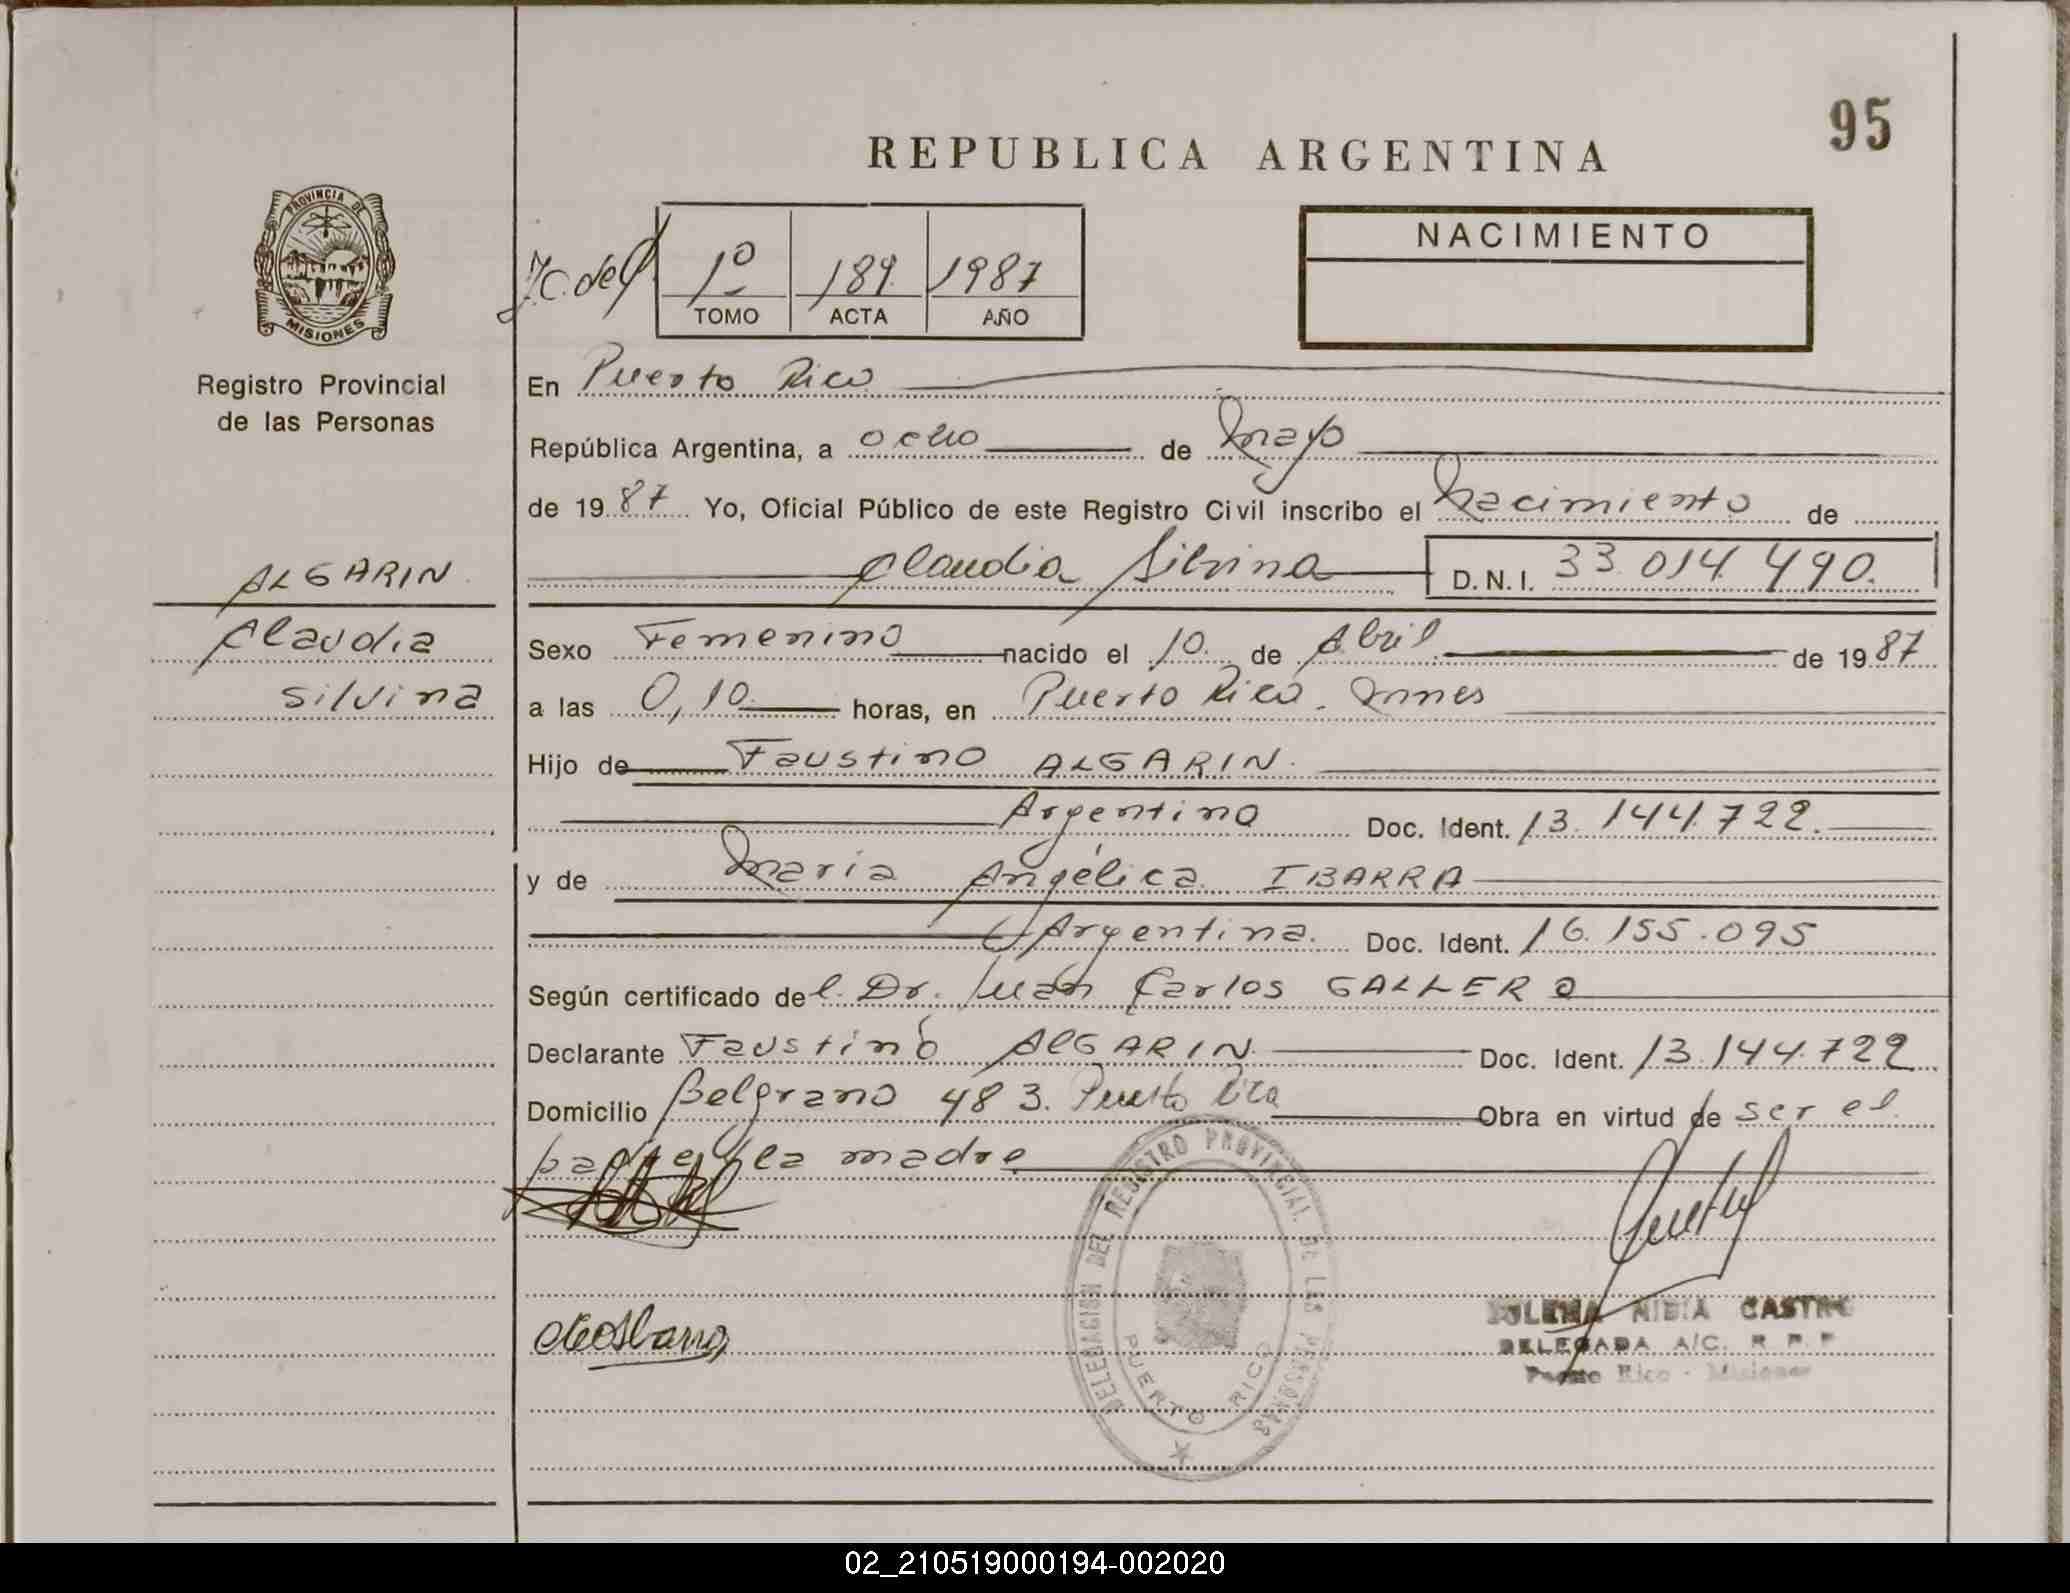 95
REPUBLICA ARGENTINA
PROVINCIA DE
MISIONES
Registro Provincial
de las Personas
1º 189 1987
TOMO ACTA AÑO
NACIMIENTO
En Puerto Rico
República Argentina, a ocho de mayo
de 1987 Yo, Oficial Público de este Registro Civil inscribo el nacimiento de
Claudia Silvina D.N.I. 33.014.490.
ALGARIN
Claudia
Silvina
Sexo Femenino nacido el 10 de Abril de 1987
a las 0,10 horas, en Puerto Rico.
Hijo de Faustino ALGARIN.
Argentino Doc. Ident. 13.144.722.
y de María Angélica IBARRA
Argentina. Doc. Ident. 16.155.095
Según certificado del Dr. Juan Carlos GALLERO
Declarante Faustino ALGARIN Doc. Ident. 13.144.722
Domicilio Belgrano 483. Puerto Rico Obra en virtud de ser el
padre y la madre
DELEGACION DEL REGISTRO PROVINCIAL DE LAS PERSONAS
PUERTO RICO
NIDIA CASTRO
DELEGADA A/C. R. P. P.
Puerto Rico - Misiones
02_210519000194-002020